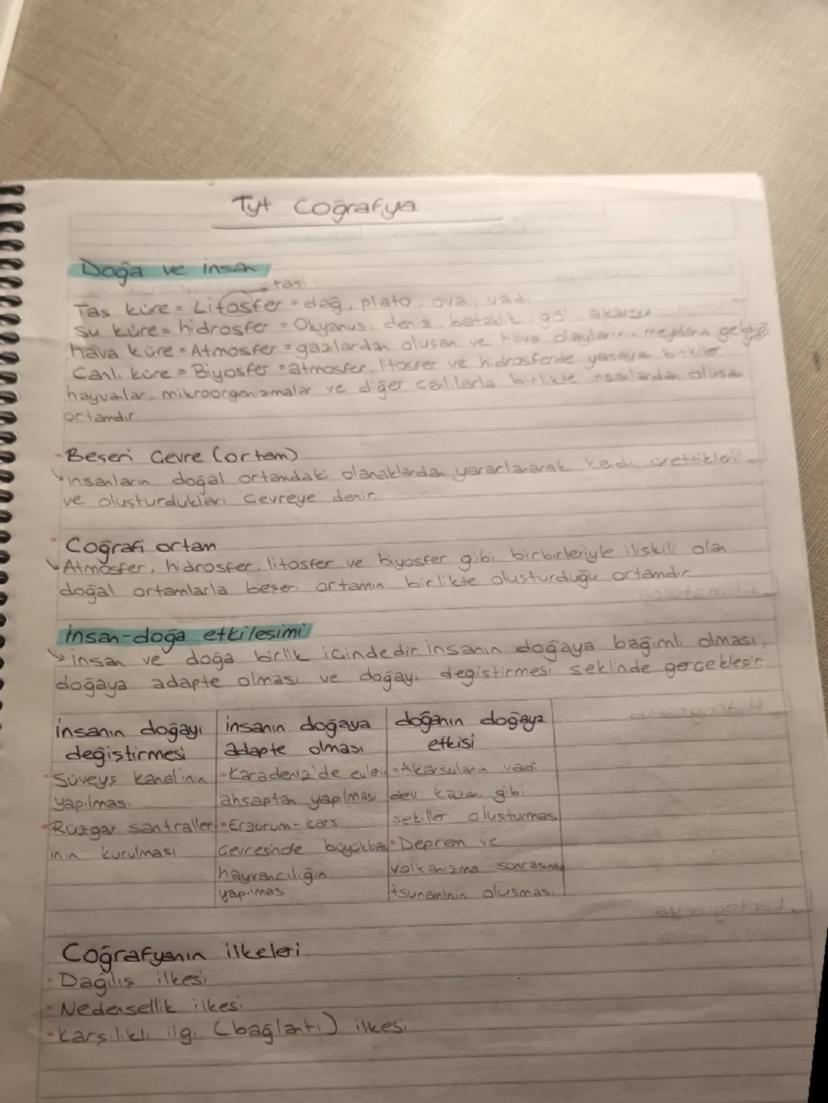 Tyt Coğrafya
Doğa ve insan
taş
Taş küre = Litosfer = dağ, plato, ova, vadi
Su küre = hidrosfer = Okyanus, deniz, bataklık, göl, akarsu
hava küre = Atmosfer = gazlardan oluşan ve hava olaylarının meydana geldiği
Canlı küre = Biyosfer = atmosfer, litosfer ve hidrosferde yaşayan bitkiler
hayvanlar, mikroorganizmalar ve diğer canlılarla birlikte insanlardan oluşan
ortamdır.
- Beşeri Çevre (ortam)
insanların doğal ortamdaki olanaklardan yararlanarak kendi ürettikleri
ve oluşturdukları çevreye denir.
- Coğrafi ortam
Atmosfer, hidrosfer, litosfer ve biyosfer gibi birbirleriyle ilişkili olan
doğal ortamlarla beşeri ortamın birlikte oluşturduğu ortamdır.
insan-doğa etkileşimi
insan ve doğa birlik içindedir insanın doğaya bağımlı olması,
doğaya adapte olması ve doğayı değiştirmesi şeklinde gerçekleşir
insanın doğayı değiştirmesi
- Süveyş kanalının
yapılması.
- Rüzgar santraller
inin kurulması
insanın doğaya
adapte olması
- Karadeniz'de evlerin
ahşaptan yapılması
- Erzurum-kars
çevresinde büyükbaş
hayvancılığın
yapılması
doğanın doğaya
etkisi
- Akarsuların vadi
dev kazanı gibi
şekiller oluşturması
- Deprem ve
volkanizma sonrasında
tsunaminin oluşması.
Coğrafyanın ilkeleri
- Dağılış ilkesi
- Nedensellik ilkesi
- karşılıklı ilgi (bağlantı) ilkesi